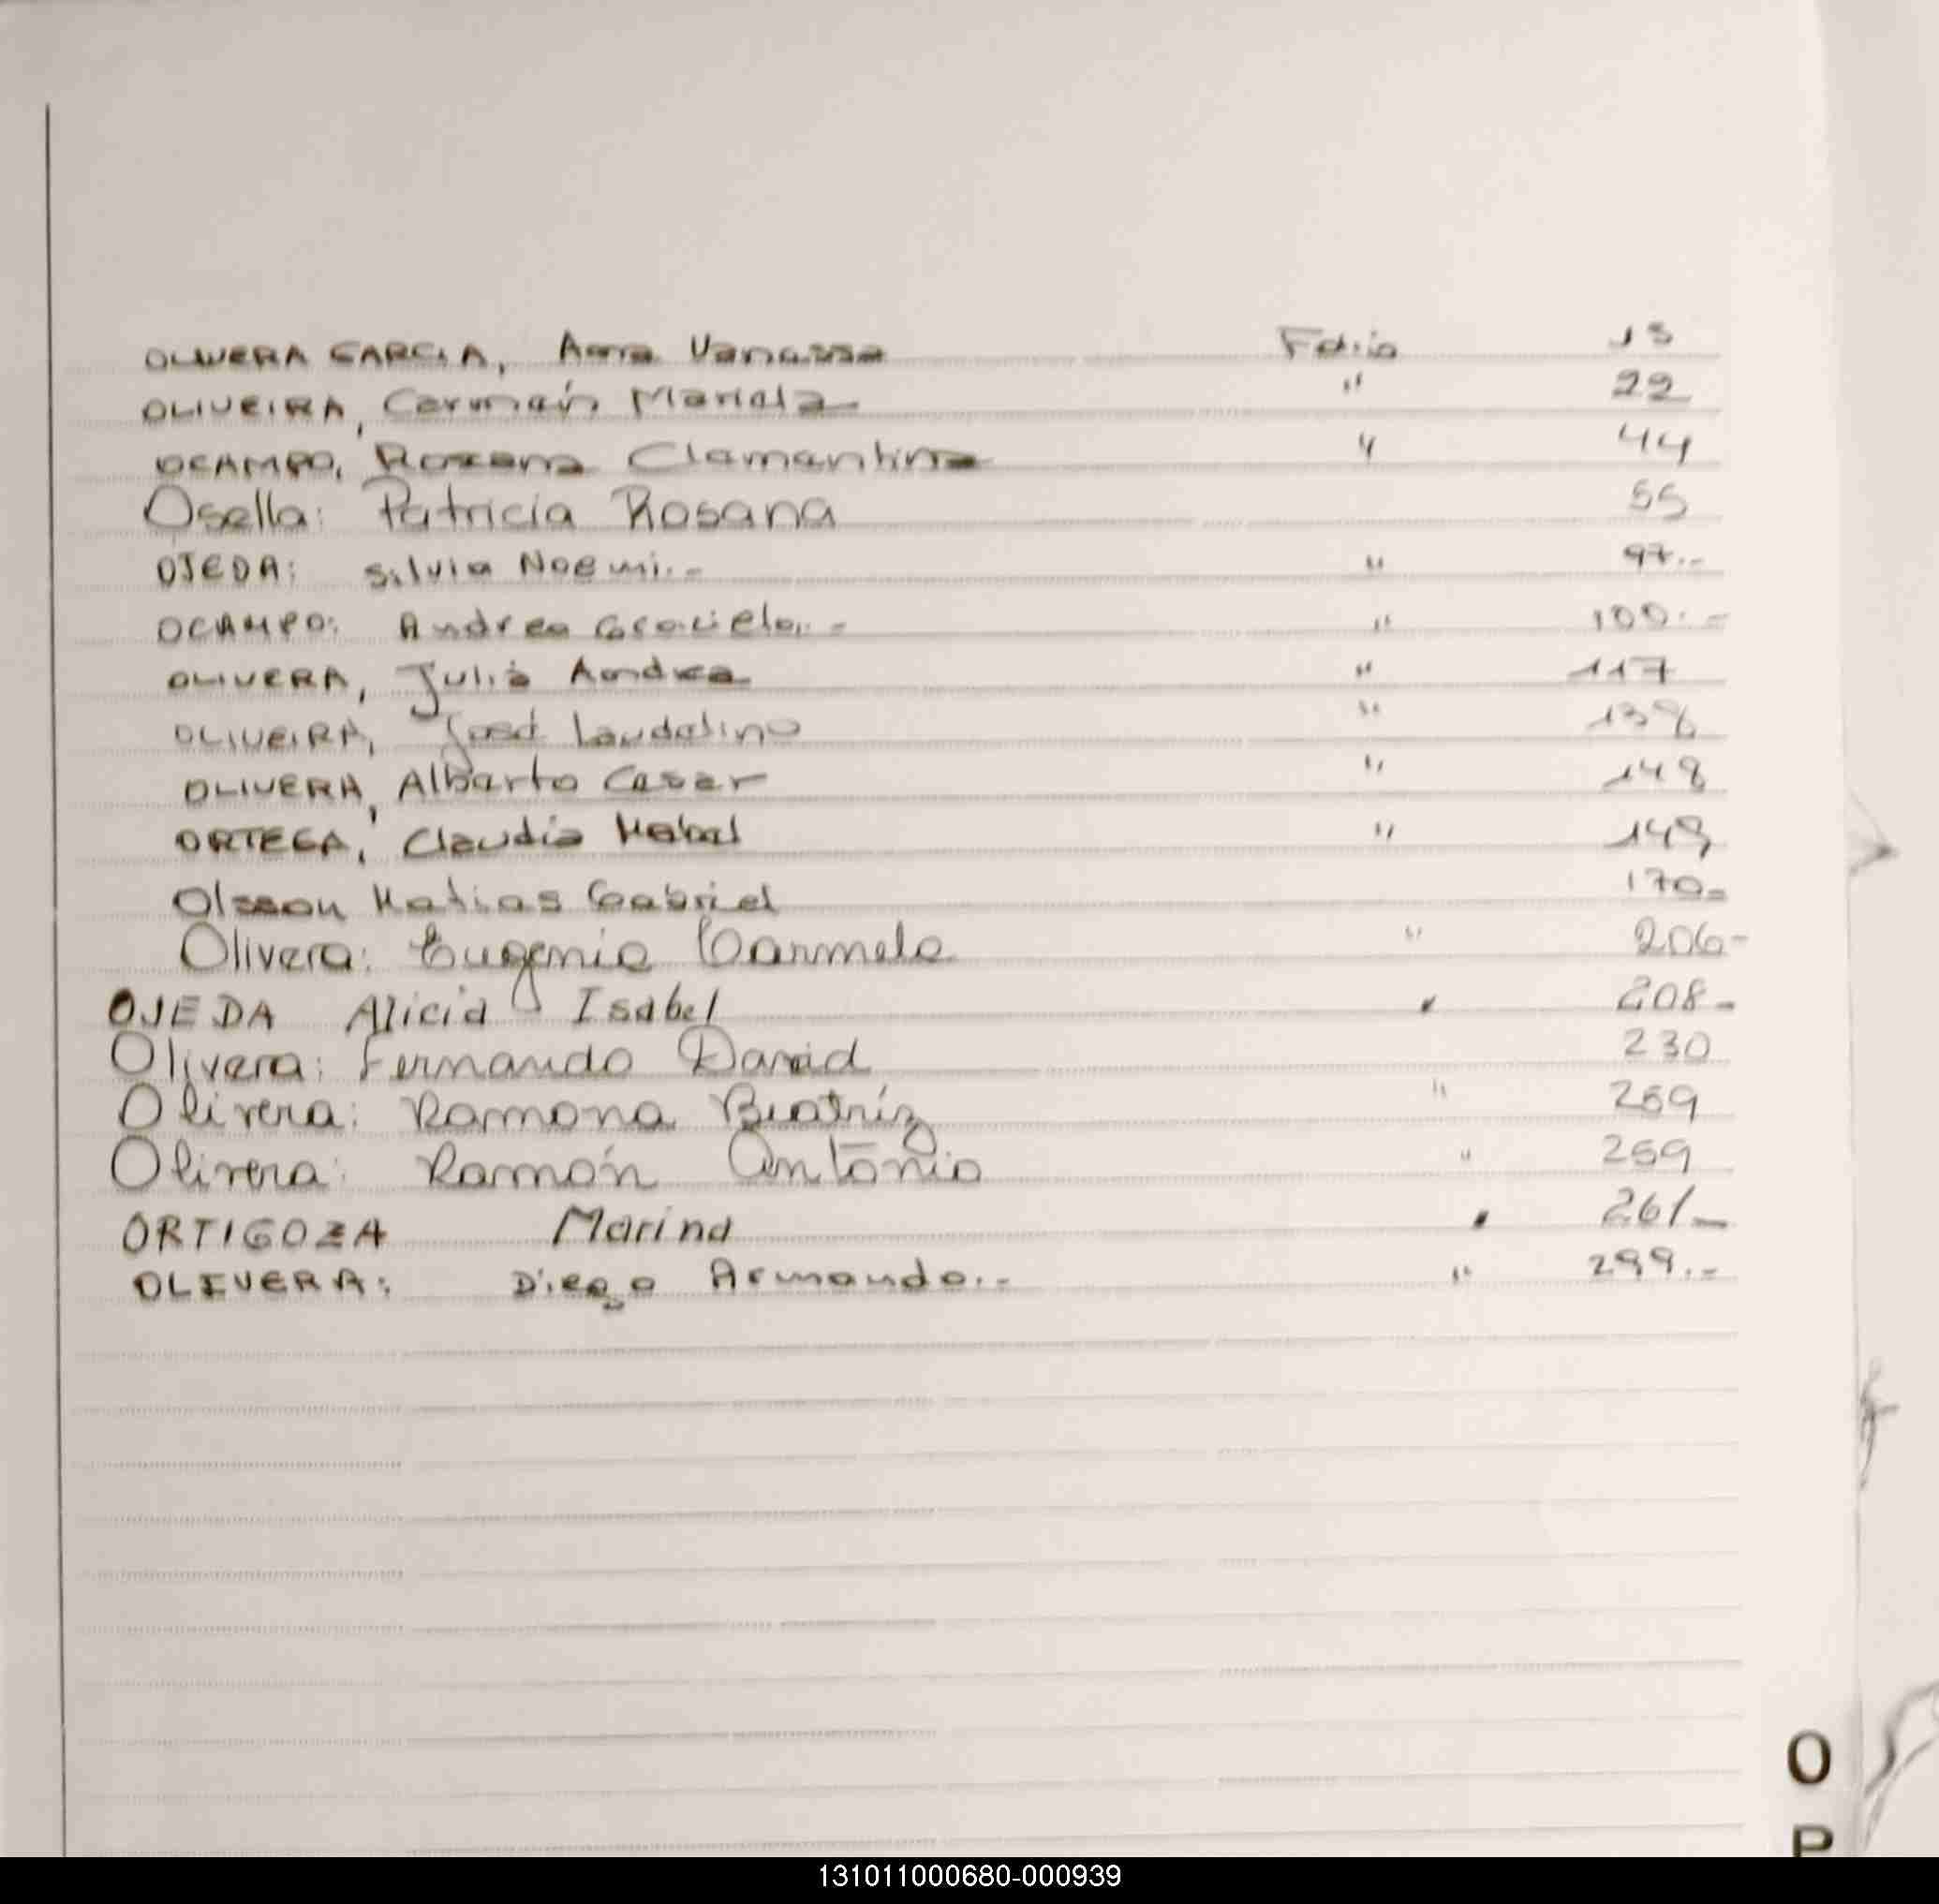 OLIVERA GARCIA, Ana Vanessa Folio 13
OLIVEIRA, Carmen Mariela " 22
OCAMPO, Roxana Clementina " 44
Osella: Patricia Rosana 55
OJEDA: Silvia Noemi.- " 97.-
OCAMPO: Andrea Graciela.- " 100.-
OLIVERA, Julia Andrea " 117
OLIVEIRA, José Laudelino " 138
OLIVERA, Alberto Cesar " 148
ORTEGA, Claudia Mabel " 149
Olsson Matias Gabriel 170-
Olivera: Eugenio Carmelo " 206-
OJEDA Alicia Isabel " 208-
Olivera: Fernando David 230
Olivera: Ramona Beatríz " 259
Olivera: Ramón Antonio " 259
ORTIGOZA Marina " 261-
OLIVERA: Diego Armando.- " 299.-
O
P
131011000680-000939